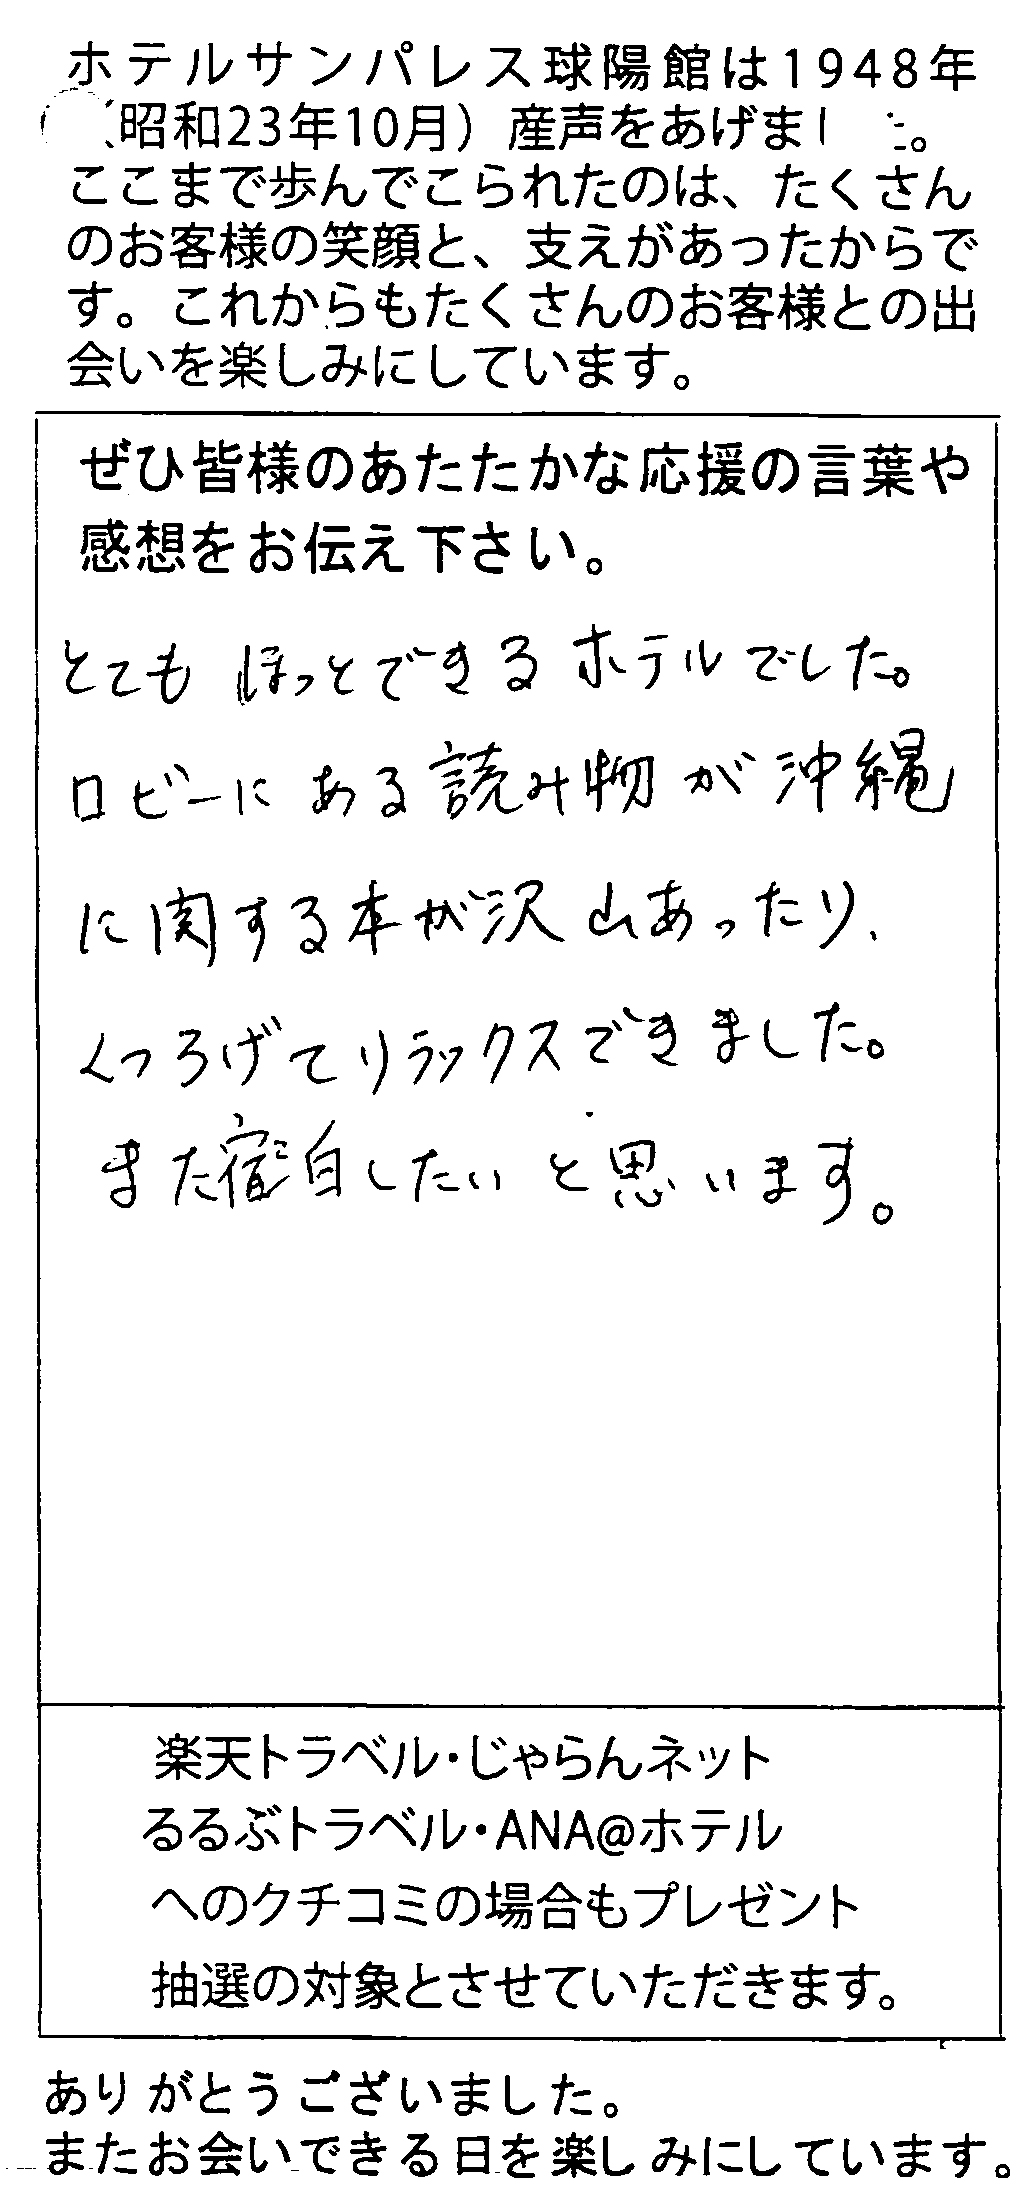 ホテルサンパレス球陽館は1948年
（昭和23年10月）産声をあげました。
ここまで歩んでこられたのは、たくさん
のお客様の笑顔と、支えがあったからで
す。これからもたくさんのお客様との出
会いを楽しみにしています。
ぜひ皆様のあたたかな応援の言葉や
感想をお伝え下さい。
とても ほっとできるホテルでした。
ロビーにある読み物が沖縄
に関する本が沢山あったり、
くつろげてリラックスできました。
また宿泊したいと思います。
楽天トラベル・じゃらんネット
るるぶトラベル・ANA@ホテル
へのクチコミの場合もプレゼント
抽選の対象とさせていただきます。
ありがとうございました。
またお会いできる日を楽しみにしています。